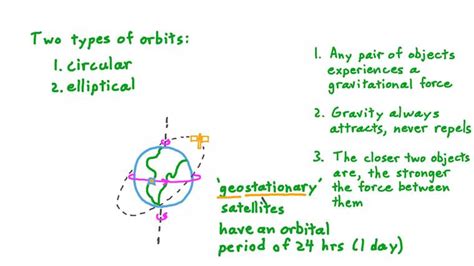 Two types of orbits:
1. circular
2. elliptical
1. Any pair of objects
experiences a
gravitational force
2. Gravity always
attracts, never repels
3. The closer two objects
are, the stronger
the force between
them
"geostationary"
satellites
have an orbital
period of 24 hrs (1 day)